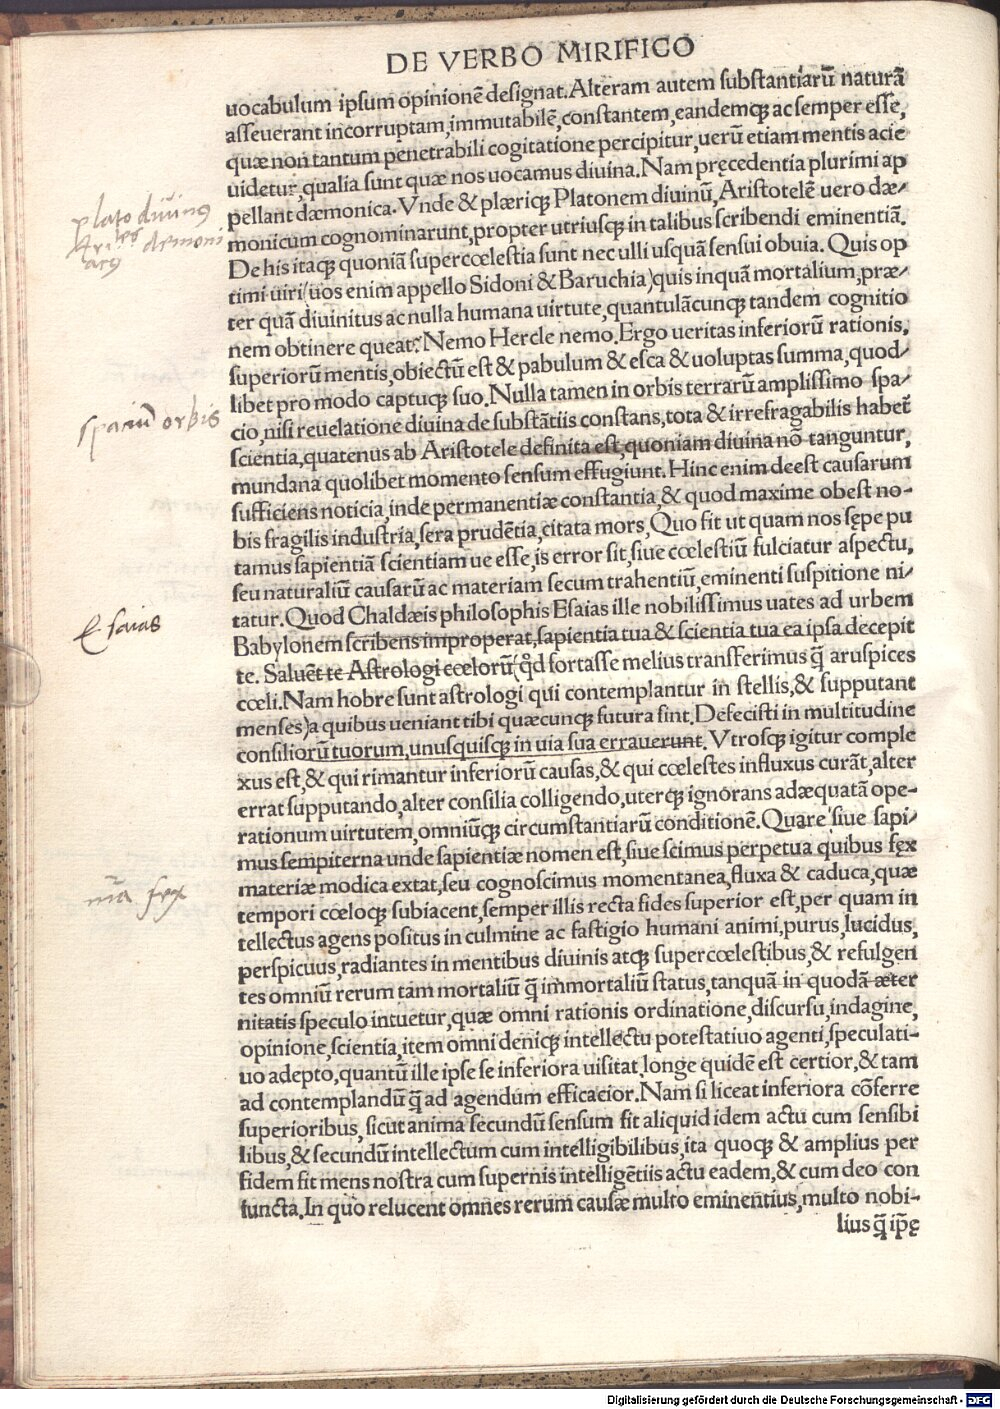 DE VERBO MIRIFICO
uocabulum ipsum opinionē designat. Alteram autem substantiarū naturā
asseuerant incorruptam, immutabilē, constantem, eandemq; ac semper esse,
quæ non tantum penetrabili cogitatione percipitur, uerū etiam mentis acie
uidetur, qualia sunt quæ nos uocamus diuina. Nam pręcedentia plurimi ap
pellant dæmonica. Vnde & plæriq; Platonem diuinū, Aristotelē uero dæ/
monicum cognominarunt, propter utriusq; in talibus scribendi eminentiā.
De his itaq; quoniā supercœlestia sunt nec ulli usquā sensui obuia. Quis op
timi uiri (uos enim appello Sidoni & Baruchia) quis inquā mortalium, præ/
ter quā diuinitus ac nulla humana uirtute, quantulācunq; tandem cognitio
nem obtinere queat? Nemo Hercle nemo. Ergo ueritas inferiorū rationis,
superiorū mentis, obiectū est & pabulum & esca & uoluptas summa, quod/
libet pro modo captuq; suo. Nulla tamen in orbis terrarū amplissimo spa/
cio, nisi reuelatione diuina de substātiis constans, tota & irrefragabilis habet̄
scientia, quatenus ab Aristotele definita est, quoniam diuina nō tanguntur,
mundana quolibet momento sensum effugiunt. Hinc enim deest causarum
sufficiens noticia, inde permanentiæ constantia, & quod maxime obest no-
bis fragilis industria, sera prudētia, citata mors, Quo fit ut quam nos sępe pu
tamus sapientiā scientiam ue esse, is error sit, siue cœlestiū fulciatur aspectu,
seu naturaliū causarū ac materiam secum trahentiū, eminenti suspitione ni/
tatur. Quod Chaldæis philosophis Esaias ille nobilissimus uates ad urbem
Babylonem scribens improperat, sapientia tua & scientia tua ea ipsa decepit
te. Saluēt te Astrologi cœlorū (qd̄ fortasse melius transferimus q̄ aruspices
cœli. Nam hobre sunt astrologi qui contemplantur in stellis, & supputant
menses) a quibus ueniant tibi quæcunq; futura sint. Defecisti in multitudine
consiliorū tuorum, unusquisq; in uia sua errauerunt. Vtrosq; igitur comple
xus est, & qui rimantur inferiorū causas, & qui cœlestes influxus curāt, alter
errat supputando, alter consilia colligendo, uterq; ignorans adæquatā ope-
rationum uirtutem, omniūq; circumstantiarū conditionē. Quare siue sapi/
mus sempiterna unde sapientiæ nomen est, siue scimus perpetua quibus fęx
materiæ modica extat, seu cognoscimus momentanea, fluxa & caduca, quæ
tempori cœloq; subiacent, semper illis recta fides superior est, per quam in
tellectus agens positus in culmine ac fastigio humani animi, purus, lucidus,
perspicuus, radiantes in mentibus diuinis atq; supercœlestibus, & refulgen
tes omniū rerum tam mortaliū q̄ immortaliū status, tanquā in quodā æter
nitatis speculo intuetur, quæ omni rationis ordinatione, discursu, indagine,
opinione, scientia, item omni deniq; intellectu potestatiuo agenti, speculati-
uo adepto, quantū ille ipse se inferiora uisitat, longe quidē est certior, & tam
ad contemplandū q̄ ad agendum efficacior. Nam si liceat inferiora cōferre
superioribus, sicut anima secundū sensum fit aliquid idem actu cum sensibi
libus, & secundū intellectum cum intelligibilibus, ita quoq; & amplius per
fidem fit mens nostra cum supernis intelligētiis actu eadem, & cum deo con
iuncta. In quo relucent omnes rerum causæ multo eminentius, multo nobi-
lius q̄ ip̄ę
plato diuinus
Ari^es demoni
acus
spaciū orbis
Esaias
mā fex
Digitalisierung gefördert durch die Deutsche Forschungsgemeinschaft - DFG